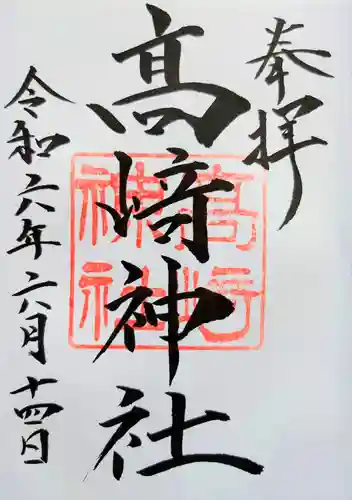 奉拝
高﨑神社
令和六年六月十四日
高﨑
神社